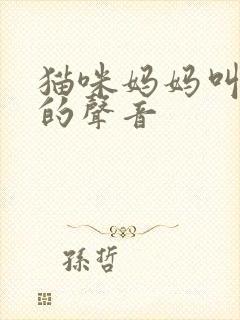 猫咪妈妈叫
的聲音
孫哲